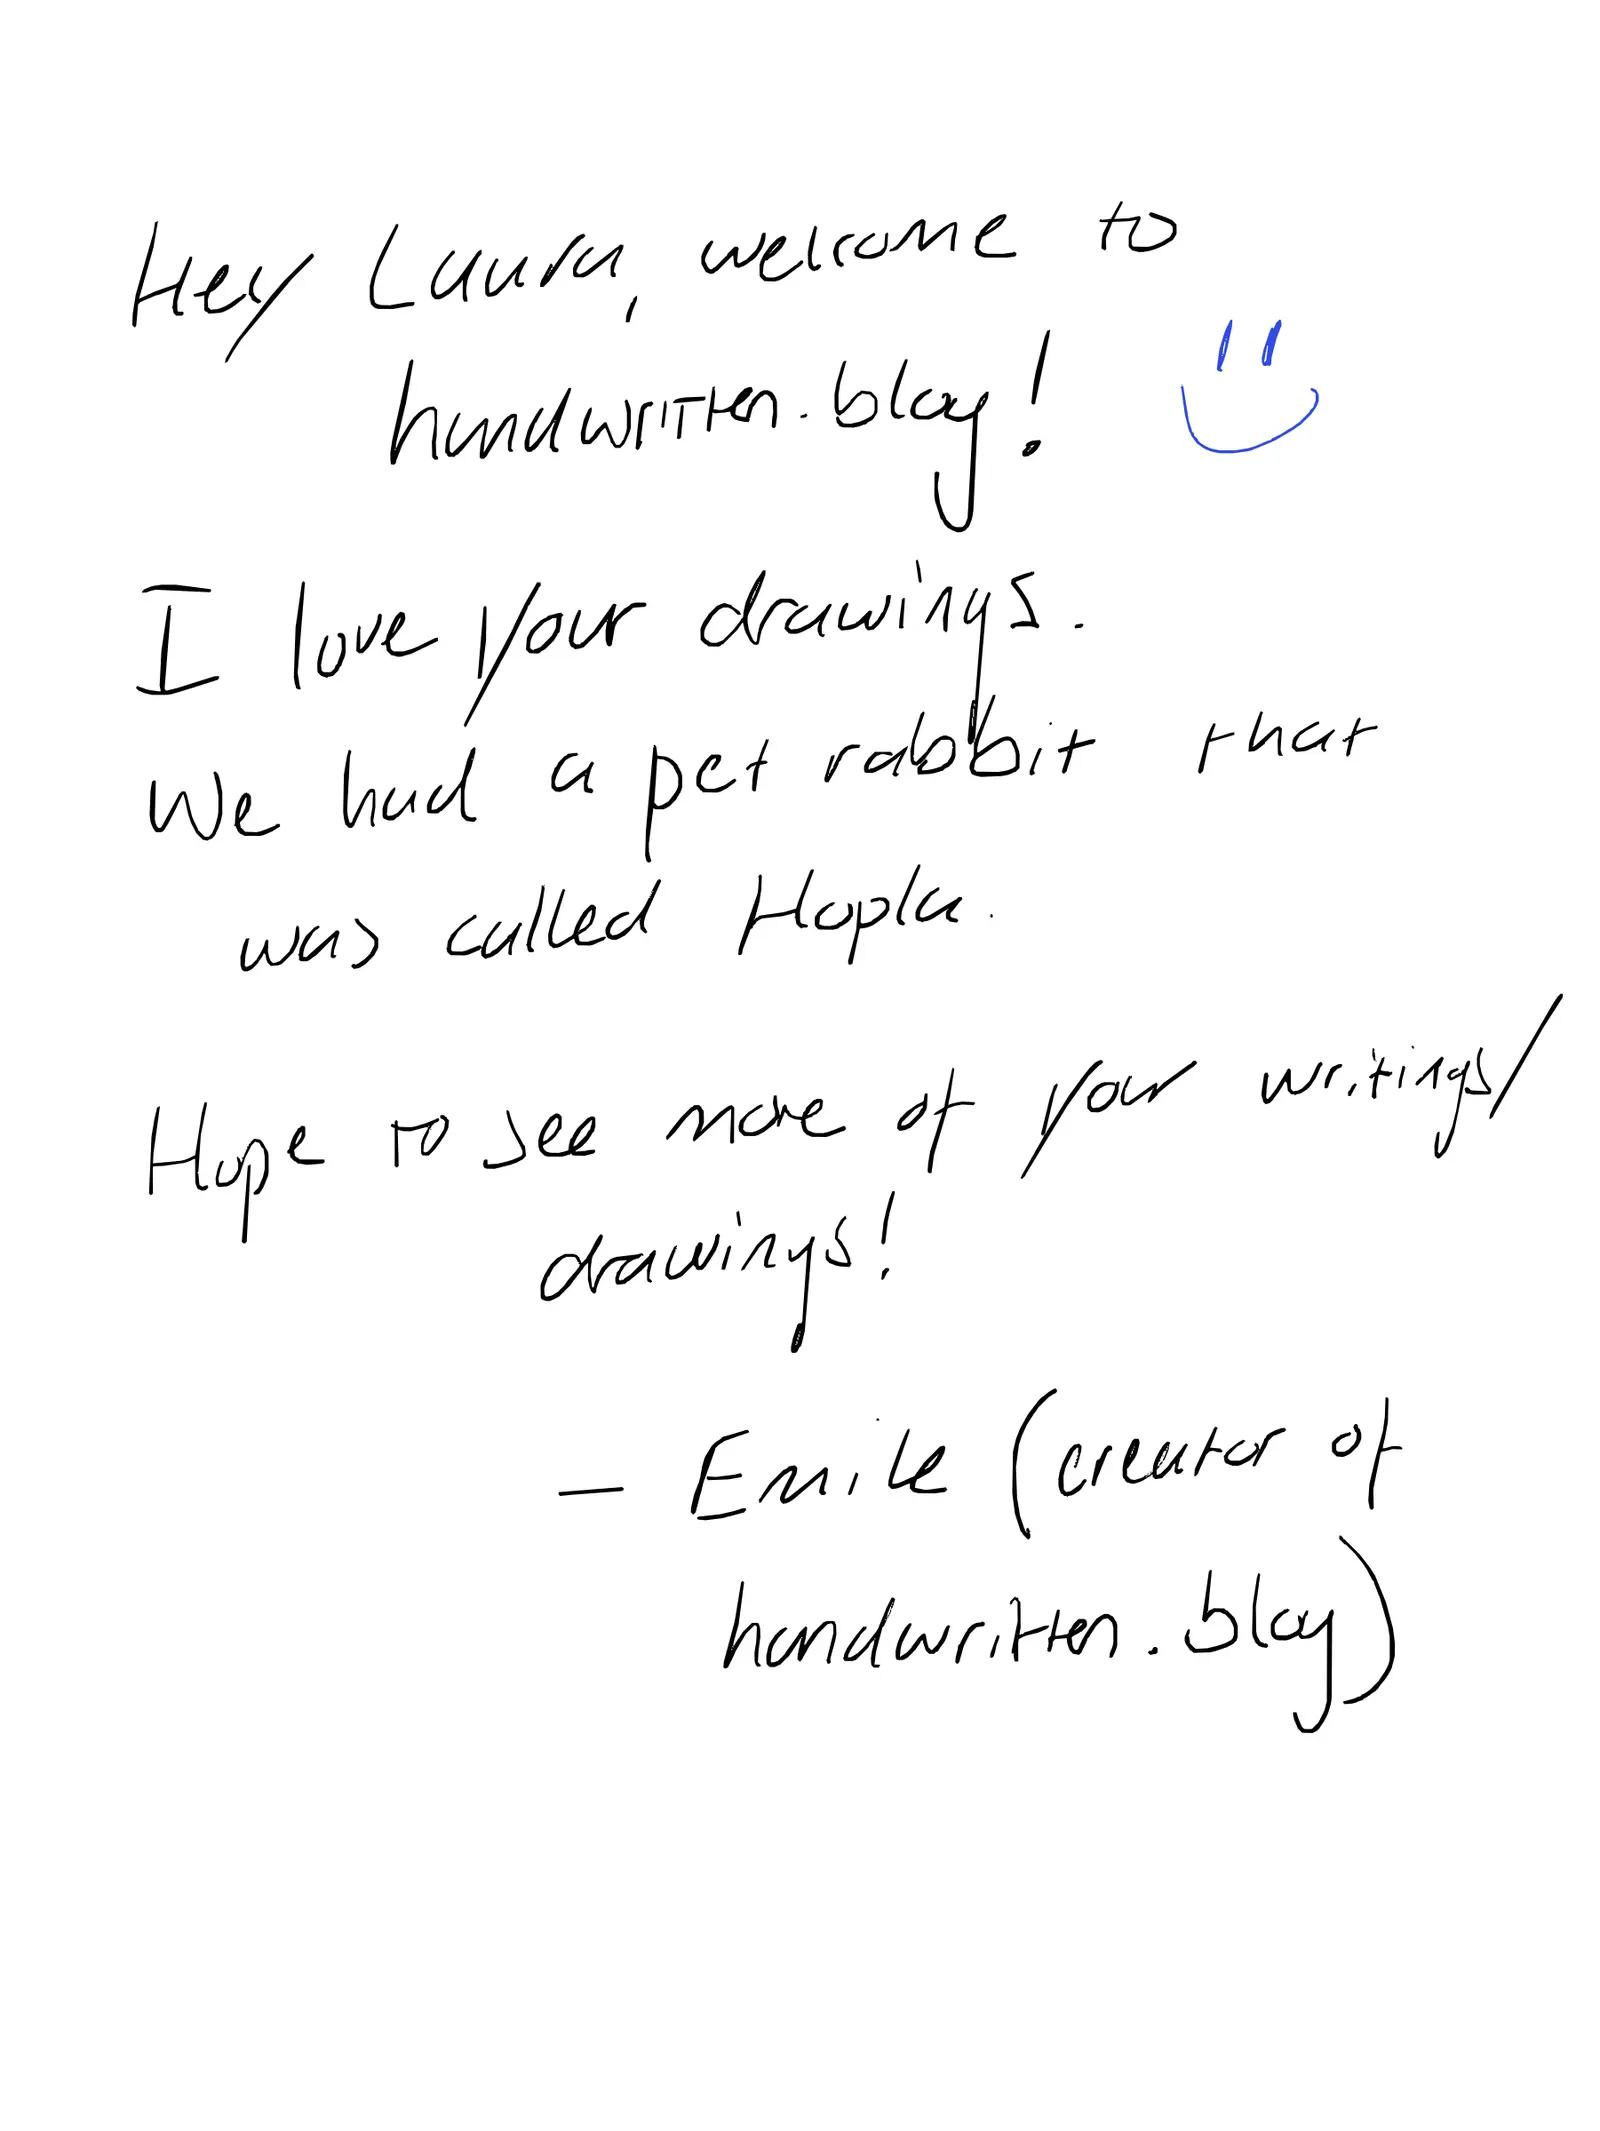 Hey Laura, welcome to
handwritten.blog!
I love your drawings.
We had a pet rabbit that
was called Hopla.
Hope to see more of your writings/
drawings!
— Emile (creator of
handwritten.blog)